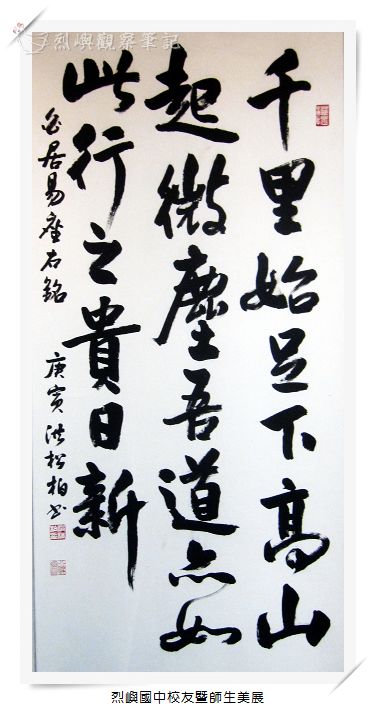 烈嶼觀察筆記
千里始足下高山
起微塵吾道亦如
此行之貴日新
白居易座右銘 庚寅 洪松柏书
烈嶼國中校友暨師生美展